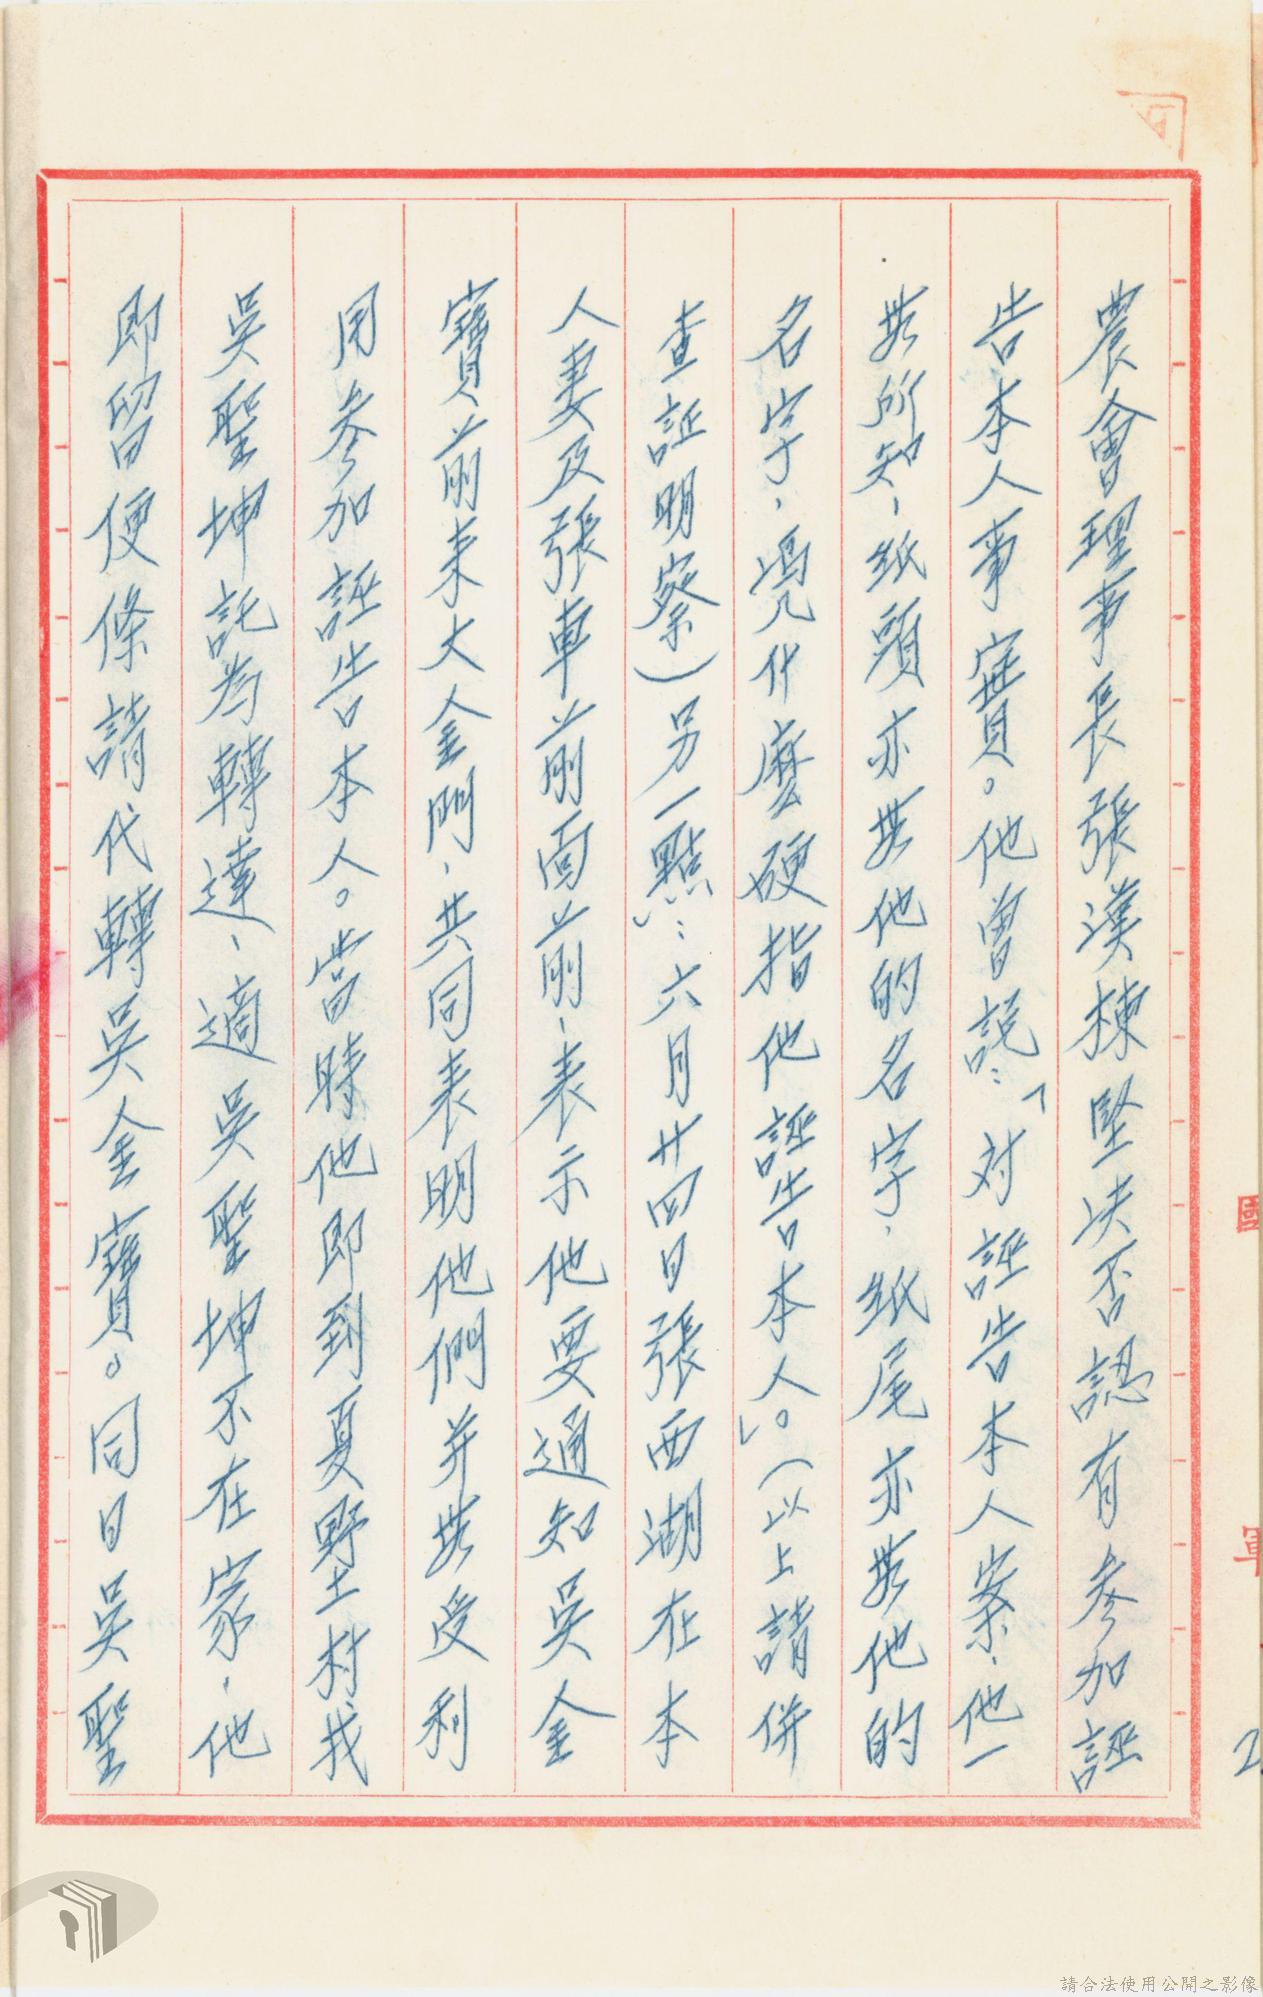 農會理事長張漢棟堅決否認有參加誣
告本人事實。他曾說：「対誣告本人案、他一
無所知、紙頭亦無他的名字、紙尾亦無他的
名字，凴什麼硬指他誣告本人。」（以上請併
查証明察）另一點：六月廿四日張西湖在本
人妻及張車前面前、表示他要通知吳金
寶前来大金門，共同表明他們并無受利
用參加誣告本人。當時他即到夏墅村找
吳聖坤託為轉達、適吳聖坤不在家，他
即留便條請代轉吳金寶。同日吳聖
國
軍
2
請合法使用公開之影像